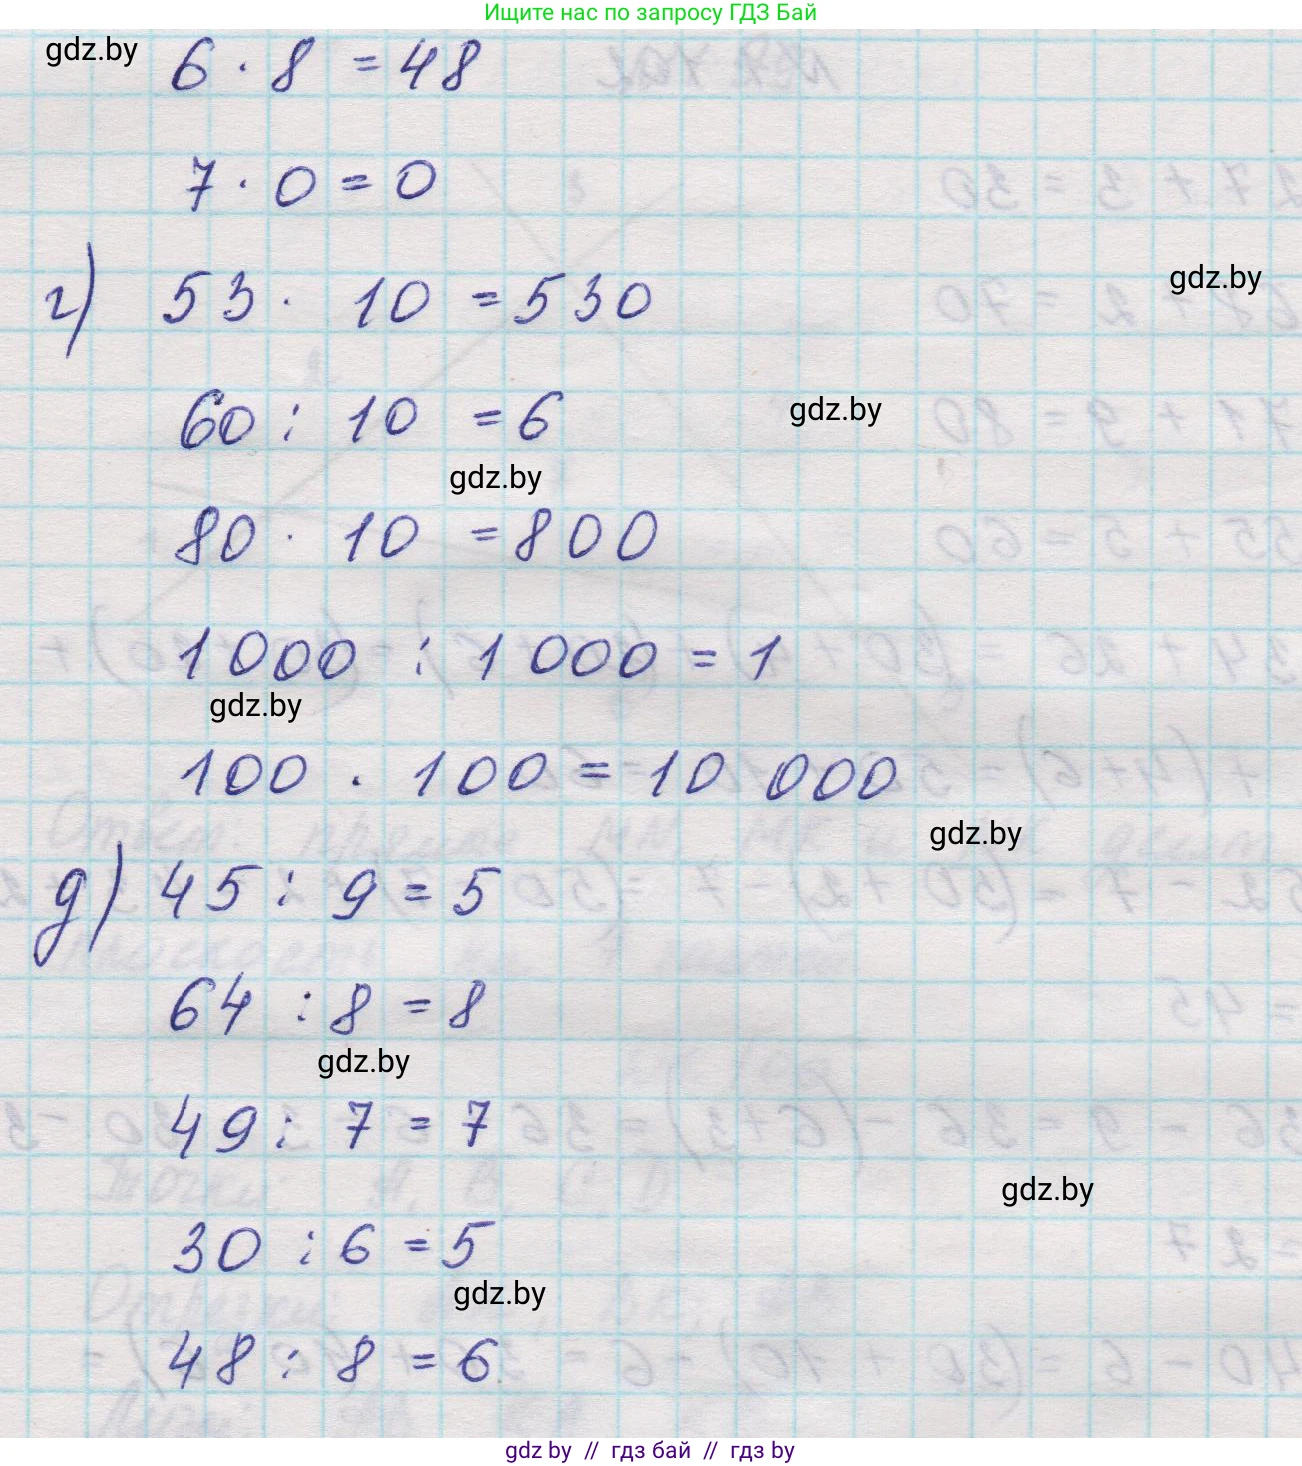 Ищите нас по запросу ГДЗ Бай
gdz.by
6 · 8 = 48
7 · 0 = 0
г) 53 · 10 = 530
gdz.by
60 : 10 = 6
gdz.by
gdz.by
80 · 10 = 800
1000 : 1000 = 1
gdz.by
100 · 100 = 10 000
gdz.by
д) 45 : 9 = 5
64 : 8 = 8
gdz.by
49 : 7 = 7
gdz.by
30 : 6 = 5
gdz.by
48 : 8 = 6
gdz by // гдз бай // гдз by